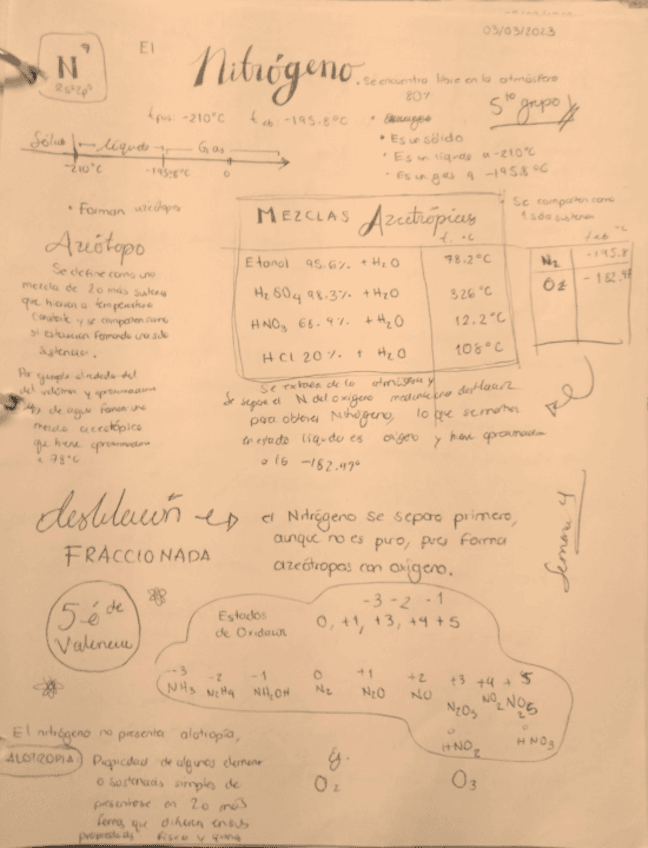 03/03/2023
N
El Nitrógeno
. Se encuentra libre en la atmósfera
80%
5to grupo
t fus: -210°C t eb: -195.8°C
• Es un sólido
• Es un líquido a -210°C
• Es un gas a -195.8°C
Sólido Líquido Gas
-210°C -195.8°C 0
• Forman azeótopos
Azeótopo
Se define como una
mezcla de 2 o más sustan
que hierven a temperatura
constante y se comportan como
si estuvieran formando una sola
sustancia.
Por ejemplo alrededor del
del volumen y aproximadamen
4% de agua forman una
mezcla azeotrópica
que hierve aproximadam
a 78°C
MEZCLAS Azeotrópicas
t. °C
Etanol 95.6% + H2O 78.2°C
H2SO4 98.3% + H2O 326°C
HNO3 68.4% + H2O 12.2°C
HCl 20% + H2O 108°C
Se comporten como
1 sola sustancia
t eb °C
N2 -195.8
O2
Se extrae de la atmósfera y
se separa el N del oxígeno mediante una destilación
para obtener Nitrógeno, lo que se mantiene
en estado líquido es oxígeno y hierve aproximadam
a los -182.97°
Semana 4
destilación
FRACCIONADA
el Nitrógeno se separa primero,
aunque no es puro, pues forma
azeótropos con oxígeno.
5 é de
Valencia
Estados
de Oxidación
-3 -2 -1
0, +1, +3, +4 +5
-3 -2 -1 0 +1 +2 +3 +4 +5
NH3 N2H4 NH2OH N2 N2O NO N2O3 NO2 N2O5
HNO2 HNO3
El nitrógeno no presenta alotropía,
ALOTROPIA Propiedad de algunos element
o sustancias simples de
presentarse en 2 o más
formas que difieren en sus
propiedades física y quím
Ej.
O2 O3